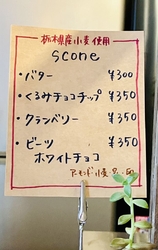 栃木県産小麦使用
scone
・バター ¥300
・くるみチョコチップ ¥350
・クランベリー ¥350
・ビーツ ¥350
ホワイトチョコ